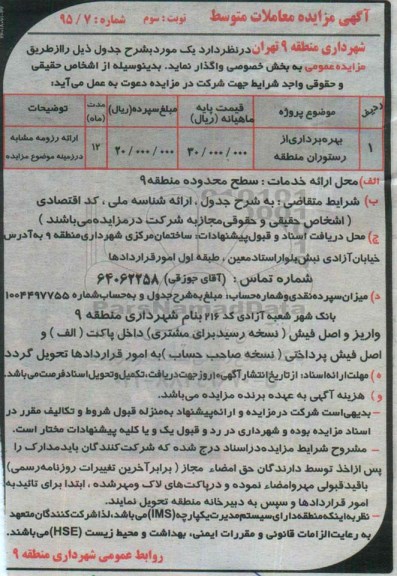 آگهی مزایده معاملات متوسط نوبت: سوم شماره: ۹۵/۷
شهرداری منطقه ۹ تهران در نظر دارد یک مورد بشرح جدول ذیل را از طریق
مزایده عمومی به بخش خصوصی واگذار نماید. بدینوسیله از اشخاص حقیقی
و حقوقی واجد شرایط جهت شرکت در مزایده دعوت به عمل می‌آید:
ردیف موضوع پروژه قیمت پایه ماهیانه (ریال) مبلغ سپرده(ریال) مدت (ماه) توضیحات
۱ بهره‌برداری از رستوران منطقه ۳۰/۰۰۰/۰۰۰ ۲۰/۰۰۰/۰۰۰ ۱۲ ارائه رزومه مشابه در زمینه موضوع مزایده
الف) محل ارائه خدمات: سطح محدوده منطقه۹
ب) شرایط متقاضی: به شرح جدول، ارائه شناسه ملی، کد اقتصادی
(اشخاص حقیقی و حقوقی مجاز به شرکت در مزایده می‌باشند)
ج) محل دریافت اسناد و قبول پیشنهادات: ساختمان مرکزی شهرداری منطقه ۹ به آدرس
خیابان آزادی نبش بلوار استاد معین، طبقه اول امور قراردادها
شماره تماس: (آقای جوزقی) ۶۴۰۶۲۲۵۸
د) میزان سپرده نقدی و شماره حساب: مبلغ به شرح جدول و به حساب شماره ۱۰۰۴۴۹۷۷۵۵
بانک شهر شعبه آزادی کد ۲۱۶ بنام شهرداری منطقه ۹
واریز و اصل فیش (نسخه رسید برای مشتری) داخل پاکت (الف) و
اصل فیش پرداختی (نسخه صاحب حساب) به امور قراردادها تحویل گردد.
ه) مهلت ارائه اسناد: از تاریخ انتشار آگهی ۱۰ روز جهت دریافت، تکمیل و تحویل اسناد فرصت می‌باشد.
و) هزینه آگهی به عهده برنده مزایده می‌باشد.
– بدیهی است شرکت در مزایده و ارائه پیشنهاد به منزله قبول شروط و تکالیف مقرر در
اسناد مزایده بوده و شهرداری در رد و قبول یک و یا کلیه پیشنهادات مختار است.
– مشروح شرایط مزایده در اسناد درج شده که شرکت کنندگان باید مدارک را
پس از اخذ توسط دارندگان حق امضاء مجاز (برابر آخرین تغییرات روزنامه رسمی)
با قید قبولی مهر و امضاء نموده و در پاکت‌های لاک و مهر شده، ابتدا برای تائید به
امور قراردادها و سپس به دبیرخانه منطقه تحویل نمایند.
– نظر به اینکه منطقه دارای سیستم مدیریت یکپارچه (IMS) می‌باشد، لذا شرکت کنندگان متعهد
به رعایت الزامات قانونی و مقررات ایمنی، بهداشت و محیط زیست (HSE) می‌باشند.
روابط عمومی شهرداری منطقه ۹